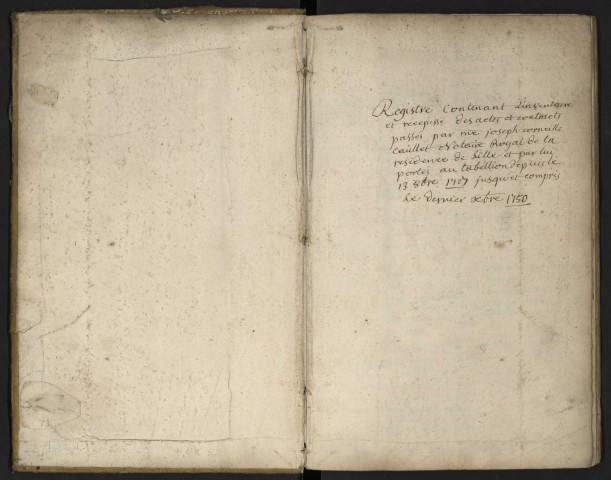 Registre Contenant L'inventaire
et recepissé des actes et contracts
passés par me joseph corneille
Caullet Notaire Royal de la
residence de Lille et par lui
portés au tabellion depuis le
13 8bre 1727 jusques et compris
le dernier xbre 1750